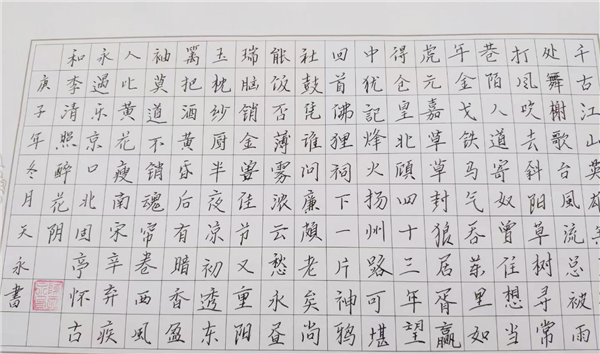 千古江山英雄
处舞榭歌台風流总被雨
打风吹去斜阳草树寻常
巷陌人道寄奴曾住想当
年金戈铁马气吞万里如
虎元嘉草草封狼居胥赢
得仓皇北顾四十三年望
中犹記烽火扬州路可堪
回首佛狸祠下一片神鸦
社鼓凭谁问廉颇老矣尚
能饭否薄雾浓云愁永昼
瑞脑销金兽佳节又重阳
玉枕纱厨半夜凉初透东
篱把酒黄昏后有暗香盈
袖莫道不销魂帘卷西风
人比黄花瘦南宋辛弃疾
永遇乐京口北固亭怀古
和李清照醉花阴
庚子年冬月天永書